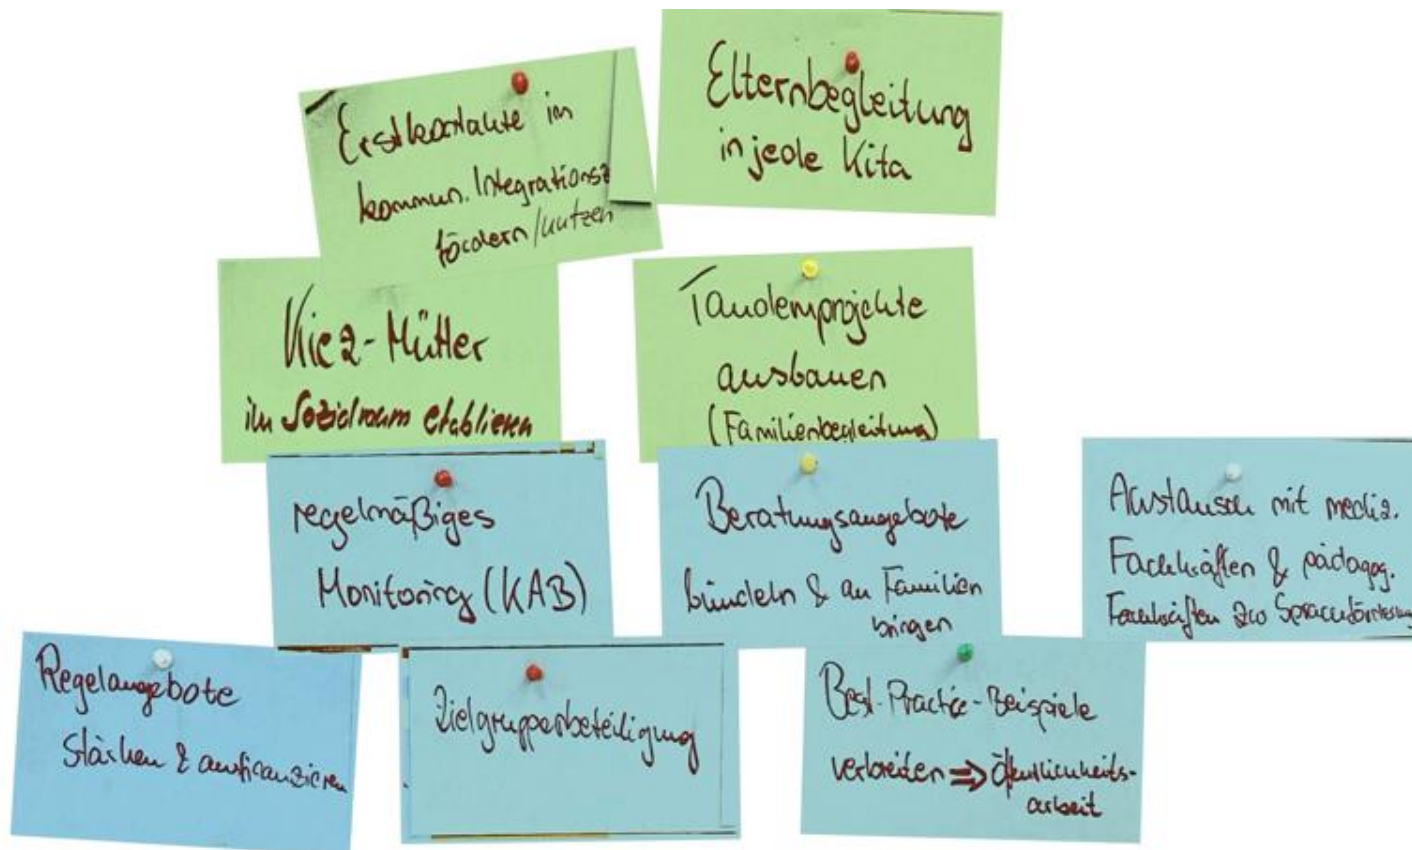 Elternbegleitung
in jede Kita
Erstkontakte im
kommun. Integrationsz
fördern/nutzen
Kiez-Mütter
im Sozialraum etablieren
Tandemprojekte
ausbauen
(Familienbegleitung)
regelmäßiges
Monitoring (KAB)
Beratungsangebote
bündeln & an Familien
bringen
Austausch mit mediz.
Fachkräften & pädagog.
Fachkräften zur Sprachförderung
Regelangebote
stärken & ausfinanzieren
Zielgruppenbeteiligung
Best-Practice-Beispiele
verbreiten ⇒ Öffentlichkeits-
arbeit